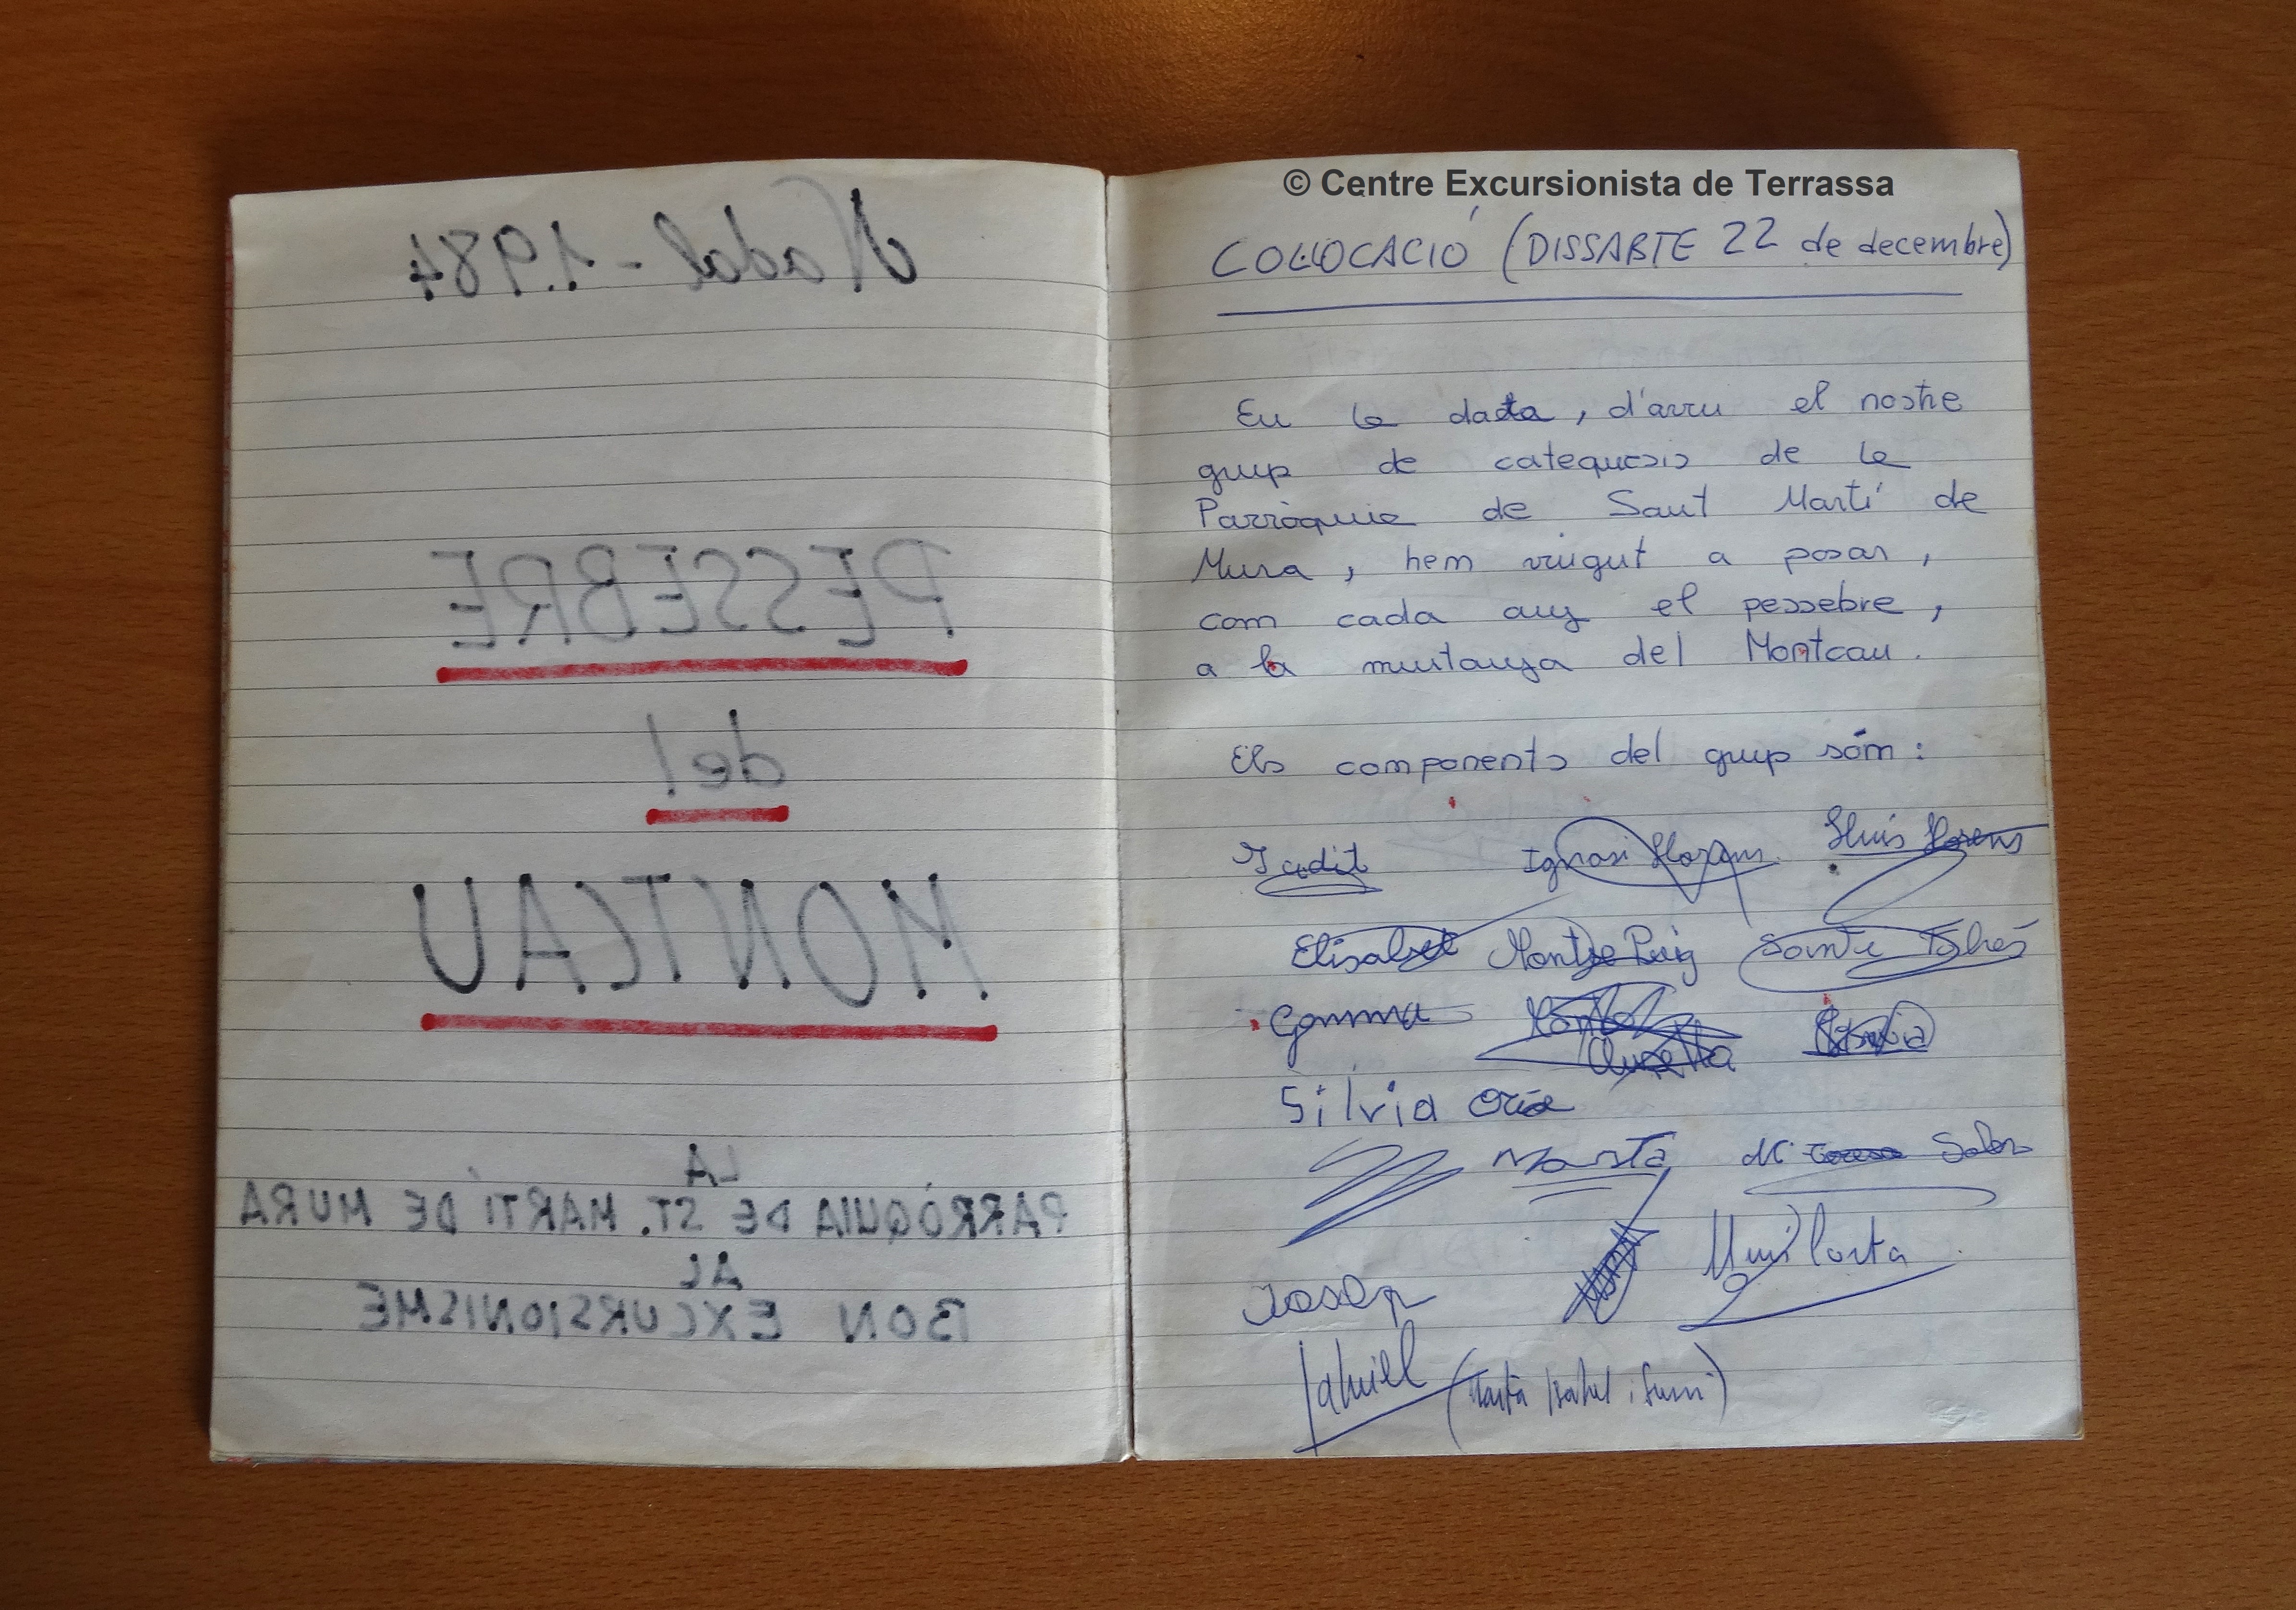 Nadal - 1.984
PESSEBRE
del
MONTCAU
LA
PARRÒQUIA DE ST. MARTÍ DE MURA
AL
BON EXCURSIONISME
© Centre Excursionista de Terrassa
COL·LOCACIÓ (DISSABTE 22 de decembre)
En la data, d'avui el nostre
grup de catequesis de la
Parròquia de Sant Martí de
Mura, hem vingut a posar,
com cada any el pessebre,
a la muntanya del Montcau.
Els components del grup sóm:
Judit Ignasi Llorens Lluís Llorens
Elisabet Montse Puig
Gemma
Silvia
Marta Mª Teresa
Josep